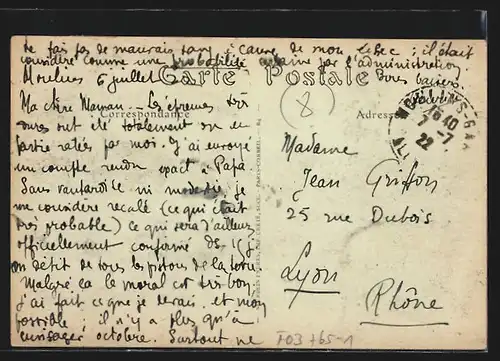 te fais pas de mauvais sang à cause de mon échec ; il était
considéré comme une probabilité par l'administration
Moulins 6 juillet
Carte Postale
Bons baisers
Correspondance
Adresse
MOULINS-GARE
16 40
7-7
22
ALL
8
Ma chère Maman - Les épreuves très
dures ont été totalement ou en
partie ratées par moi. J'ai envoyé
un compte rendu exact à Papa.
Sans vantardise ni modestie je
me considère recalé (ce qui était
très probable) ce qui sera d'ailleurs
officiellement confirmé
en dépit de tous les pistons de la
Malgré la le moral est très bon,
j'ai fait ce que je devais et non
possible ; il n'y a plus qu'à
envisager octobre. Surtout ne
Madame
Jean Griffon
25 rue Dubois
Lyon
Rhône
F03 765-1